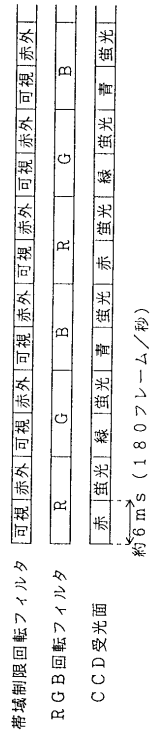 帯域制限回転フィルタ 可視 赤外 可視 赤外 可視 赤外 可視 赤外 可視 赤外 可視 赤外
RGB回転フィルタ R G B R G B
CCD受光面 赤 蛍光 緑 蛍光 青 蛍光 赤 蛍光 緑 蛍光 青 蛍光
約6ms(180フレーム/秒)